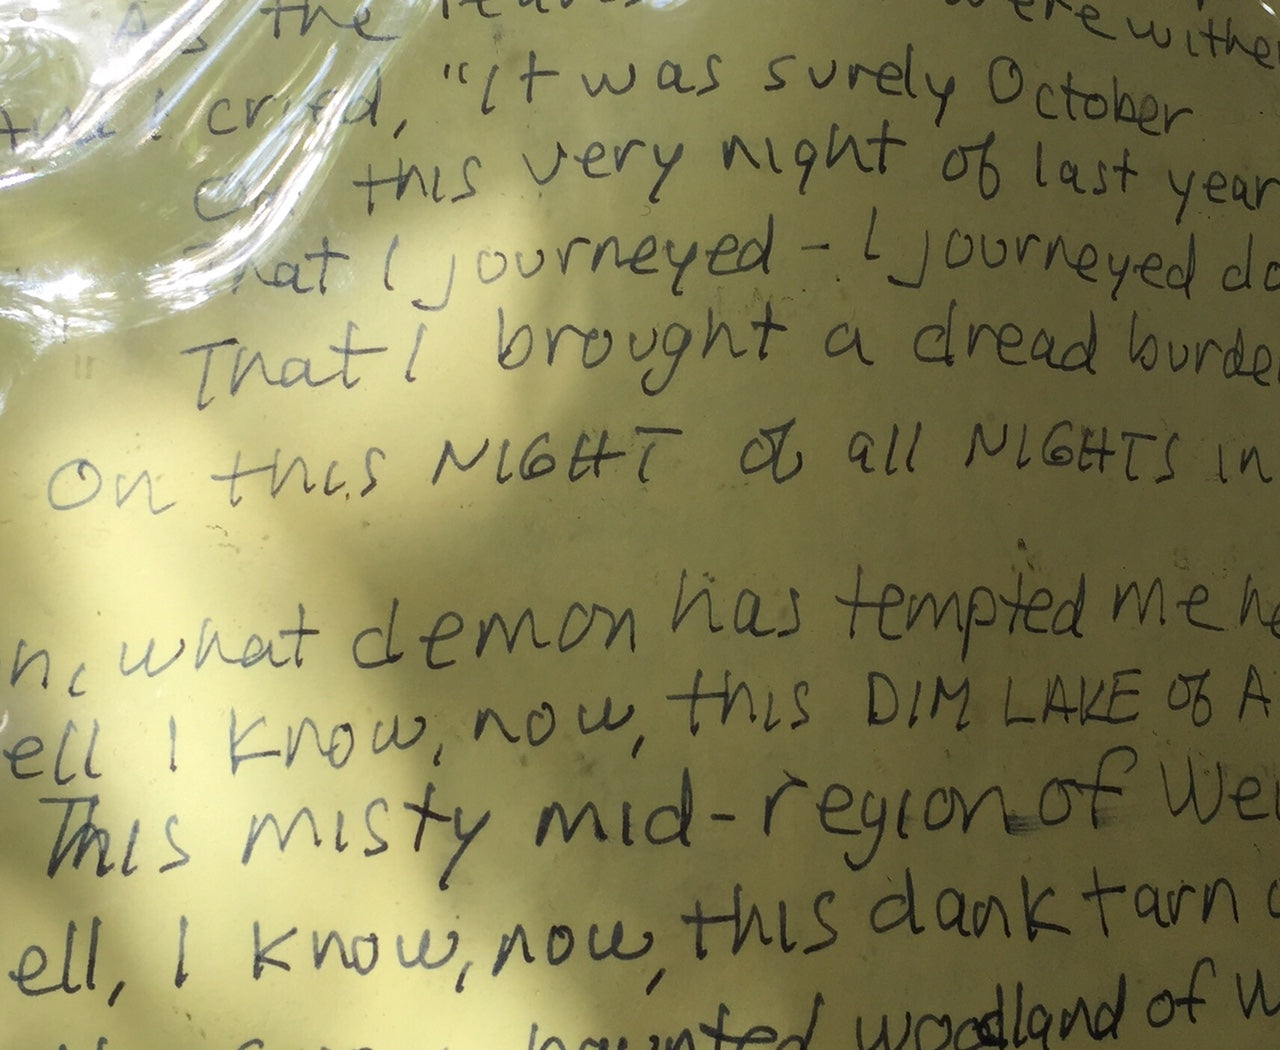 As the leaves were withe
And I cried, "It was surely October
On this very night of last year
That I journeyed - I journeyed do
That I brought a dread burde
On this NIGHT of all NIGHTS in
n, what demon has tempted me he
ell I know, now, this DIM LAKE of A
This misty mid-region of Wei
ell, I know, now, this dank tarn
haunted woodland of W